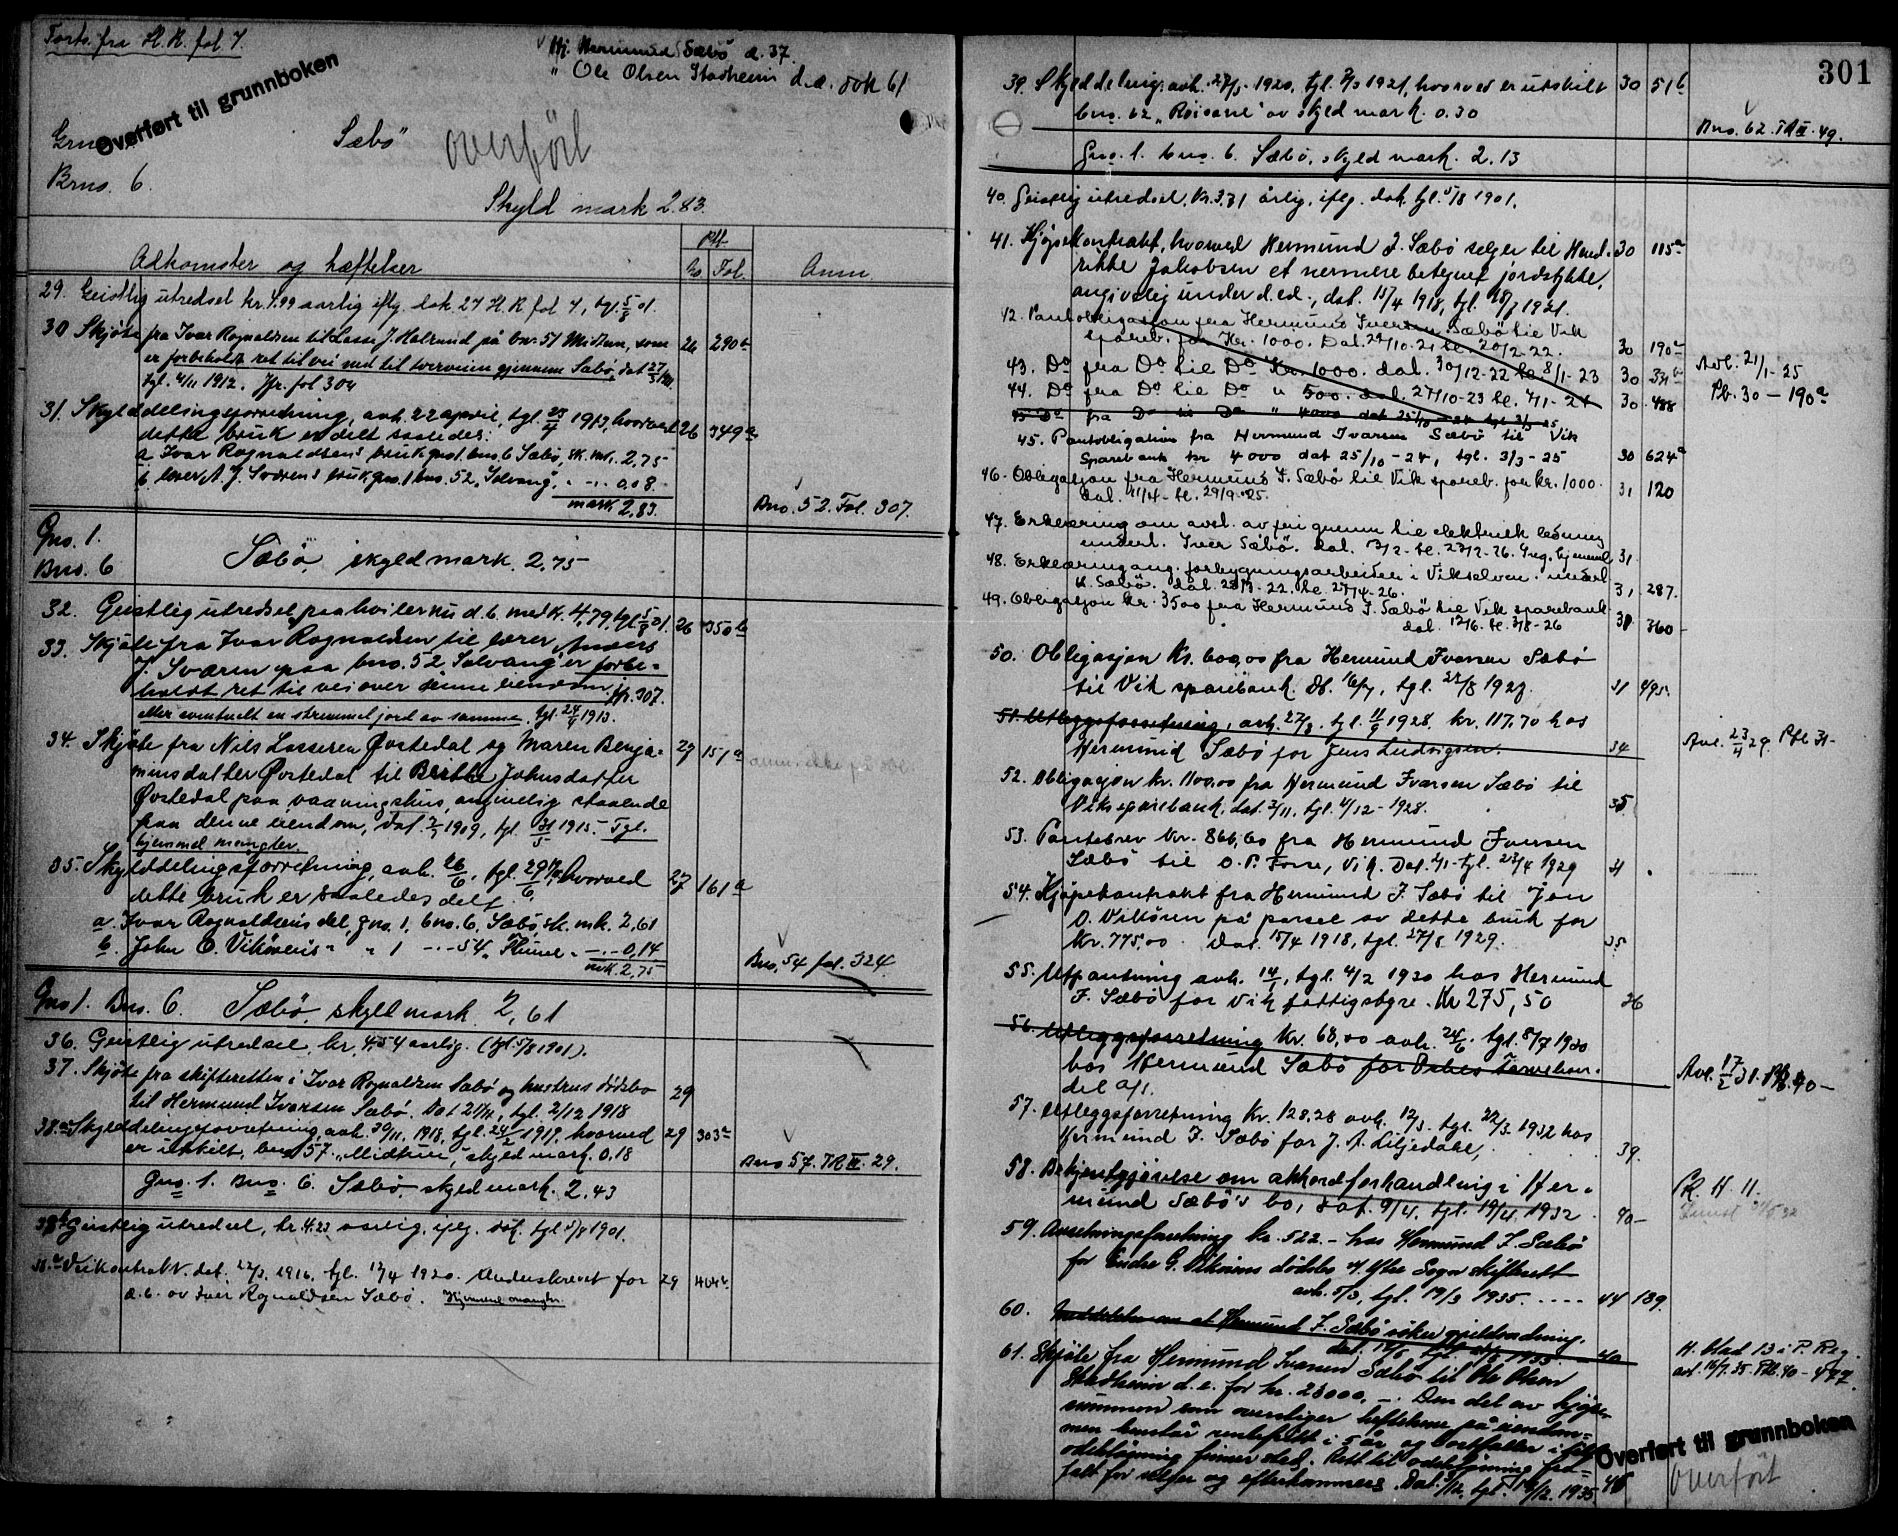 Forts. fra H.R. fol 7.
Hj. Hermund Sæbö d. 37.
" Ole Olsen Stadheim d.e. dok 61
Overført til grunnboken
Gno.
Sæbö
overfört
Brno. 6.
Skyld mark 2.83.
Adkomster og hæftelser
Pb.
No Fol.
Anm
29. Geistlig utredsel kr. 4.99 aarlig iflg. dok. 27 H.R fol 7, tgl. 5/8 01.
30 Skjöte fra Ivar Rognaldsen til Lasse J. Halsund på bno. 51 Midtun, som 26 290b
er forbeholdt ret til vei ned til tverveien gjennem Sæbö, dat 27/3
tgl. 4/11 1912. Jfr. fol 304
31. Skylddelingsforretning, avh. 22 april, tgl. 23/4 1913, hvorved 26 349a
dette bruk er delt saaledes:
a Ivar Rognaldsens bruk gno. 1, bno. 6 Sæbö, sk. mk. 2,75
b. lærer A. J. Sværens bruk, gno. 1 bno. 52, Solvang, " - .. - 0.08
mark 2,83.
Bno. 52. Fol. 307.
Gno. 1.
Bno. 6
Sæbö, skyld mark. 2,75
32. Geistlig utredsel paahviler nu d. b. med k. 4,79, tgl. 5/8 01. 26 350b
33. Skjöte fra Ivar Rognaldsen til lærer Anders
J. Sværen paa bno. 52 Solvang er forbe-
holdt ret til vei over denne eiendom jfr. 307.
eller eventuelt en strimmel jord av samme. tgl. 24/4 1913.
34. Skjöte fra Nils Lassesen Övstedal og Maren Benja- 27 151a
minsdatter Övstedal til Brithe Johnsdatter
Övstedal paa vaaningshus, angivelig staaende
paa denne eiendom, dat. 2/7 1909, tgl. 31/5 1915. Tgl.
hjemmel mangler.
35. Skylddelingsforretning, avh. 26/6, tgl. 29/6 hvorved 27 161a
dette bruk er saaledes delt:
a. Ivar Rognaldsens del, gno. 1, bno. 6, Sæbö, sk. mk. 2,61
b. John O. Vikörens " " 1 - .. - 54, Hunel " - .. - 0,14
mk. 2,75
Bno. 54 fol. 324
Gno 1. Bno. 6. Sæbö, skyld mark. 2,61
36. Geistlig utredsel, kr. 4,54 aarlig. (tgl. 5/8 1901).
37. Skjöte fra skifteretten i Ivar Rognaldsen Sæbö og hustrus dödsbo 29
til Hermund Ivarsen Sæbö. Dat 21/11, tgl. 2/12 1918
38.a Skylddelingsforretning, avh. 30/11. 1918, tgl. 24/2 1919, hvorved 29 303a
er utskilt, bno 57. "Midtun", skyld mark. 0,18
Bno 57. TR III. 29.
Gno. 1. Bno. 6. Sæbö, skyld mark. 2,43
38b Geistlig utredsel, kr. 4.23 aarlig, iflg. dok. tgl. 5/8 1901.
Veikontrakt. dat. 22/3. 1916. tgl. 12/4 1920. Underskrevet for 29 404b
d. b. av Iver Rognaldsen Sæbö. Hjemmel mangler.
301
39. Skylddeling, avh. 27/5 1920, tgl. 2/3 1921, hvorved er utskilt 30 51b
bno. 62 "Roisane" av skyld mark. 0.30
Bno. 62. TR III. 49.
Gno. 1. bno. 6. Sæbö, skyld mark. 2.13
40. Geistlig utredsel, Kr. 3.71 årlig, iflg. dok. tgl. 5/8 1901.
41. Kjöpekontrakt, hvorved Hermund J. Sæbö selger til Hend- 30 115a
rikke Jakobsen et nermere betegnet jordstykke,
angivelig under d. ed., dat. 15/4 1918, tgl. 18/7 1921.
42. Pantobligasjon fra Hermund Iversen Sæbö til Vik
spareb. for Kr. 1000. Dat. 24/10-21 tl. 20/2.22. 30 190a
43. Do fra Do til Do Kr. 1000. dal. 30/12-22 tl. 8/1-23 30 331b
44. Do fra Do til Do " 500. dal. 27/10-23 tl. 4/1-24 30 488
Avl. 21/1-25
Pb. 30 - 190a
45 Do fra Do til Do " 4000 dat 25/10-24 tgl 3/3 25
45. Pantobligation fra Hermund Ivarsen Sæbö til Vik
Sparebank kr 4000 dat 25/10-24, tgl. 3/3-25 30 624a
46. Obligasjon fra Hermund I. Sæbö til Vik spareb. for kr. 1000.
dal. 11/4 - tl. 29/9-25. 31 120
47. Erklæring om avst. av fri grunn til elektrisk ledning
underl. Iver Sæbö. dal. 13/2 - tl. 23/2-26. Ting. hjemmel 31
48. Erklæring ang. forbygningsarbeider i Vikselven. underl
H. Sæbö. dal. 28/3-22. tl. 27/4-26. 31 287.
49. Obligasjon kr. 3500 fra Hermund I. Sæbö til Vik sparebank
dal. 12/6. tl. 3/8-26 31 360
50. Obligasjon kr. 600,00 fra Hermund Ivarsen Sæbö
til Vik sparebank. D. 16/7, tgl. 22/8 1927. 31 495.
51. Utleggsforretning, avh. 27/8. tgl. 11/9 1928 kr. 117.70 hos
Hermund Sæbö for Jens Ludvigsen. 34
Avl. 23/4 29. Pbl 31-
52. Obligasjon kr. 1100,00 fra Hermund Ivarsen Sæbö til
Vik sparebank, dat. 2/11, tgl. 4/12-1928. 35
53. Pantebrev kr. 866,60 fra Hermund Iversen
Sæbö til O. P. Fosse, Vik. Dat. 2/1 - tgl. 23/4 1929 31
54. Kjöpekontrakt fra Hermund J. Sæbö til Jon
O. Vikören på parsel av dette bruk for
kr. 775,00. Dat. 15/4 1918, tgl. 27/8 1929. 35
55. Utpantning avh. 14/1, tgl. 4/2 1930 hos Hermund
I. Sæbö for Vik fattigstyre. Kr 275,50 36
56. Utleggsforretning Kr. 68,00 avh. 24/6. tgl. 8/7 1930
hos Hermund Sæbö for
del a/s.
57. Utleggsforretning Kr. 128.28 avh. 12/3. tgl. 22/3. 1932 hos
Hermund I. Sæbö for J. A. Liljedahl, 39.
58. Bekjentgjörelse om akkordforhandling i Her-
mund Sæbö's bo, dat. 9/4. tgl. 19/4. 1932 40-
Pk. H. 11.
59. Avsetningsforretning kr. 522.- hos Hermund I. Sæbö
for Endre G. Vikörens dödsbo v/ Ytre Sogn skifterett
avh. 5/3, tgl. 19/3 1935. .... 44 139.
60. Meddelelse om at Hermund I. Sæbö söker gjeldsordning.
1935 40
H. blad 13 i P. Reg.
avl. 16/9.35. Pbl. 40 - 477.
61. Skjöte fra Hermund Ivarsen Sæbö til Ole Olsen
Stadheim d. e. for kr. 23000,-. Den del av kjöpe-
summen som overstiger heftelsene på eiendom-
men henstår rentefritt i 5 år og bortfaller i fall
odelslösning finner sted. Rett til odelslösning fra-
falt for selger og efterkommere. Dat. 3/12, tgl. 16/12. 1935 46
Overført til grunnboken
overfört